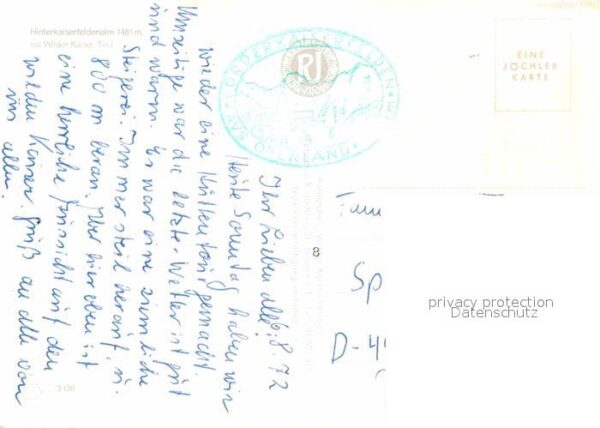 Hinterkaiserfeldenalm 1481 m
mit Wildem Kaiser, Tirol
VORDERKAISERFELDEN
OBERLAND
RJ
EINE
JÖCHLER
KARTE
6.8.72
Ihr Lieben alle!
Heute Sonntag haben wir
wieder eine Hüttentour gemacht.
Umseitige war die letzte. Wetter ist gut
und warm. Es war eine ziemliche
Steigerei. Immer steil herauf.
800 m heran. Aber hier oben ist
eine herrliche Fernsicht auf den
wilden Kaiser. Gruß an alle von
uns allen.
8
Sp
D-4
3120
privacy protection
Datenschutz